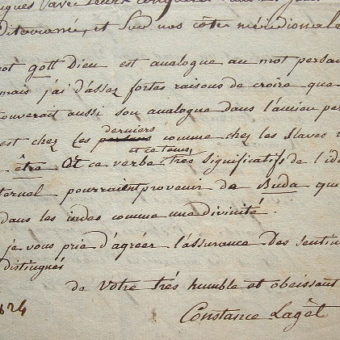 diterranné et sur nos côtes méridionale
mot gott Dieu est analogue au mot persan
mais j'ai d'assez fortes raisons de croire que
trouverait aussi son analogue dans l'ancien per
est chez les derniers comme chez les slaves
et ca tous
être. Et ca verbe très significatif de l'id
ternel pourraient provenir de Buda que
dans les indes comme une divinité.
je vous prie d'agréer l'assurance Des sentim
distingués
de votre très humble et obeissant
Constance Lagét
624